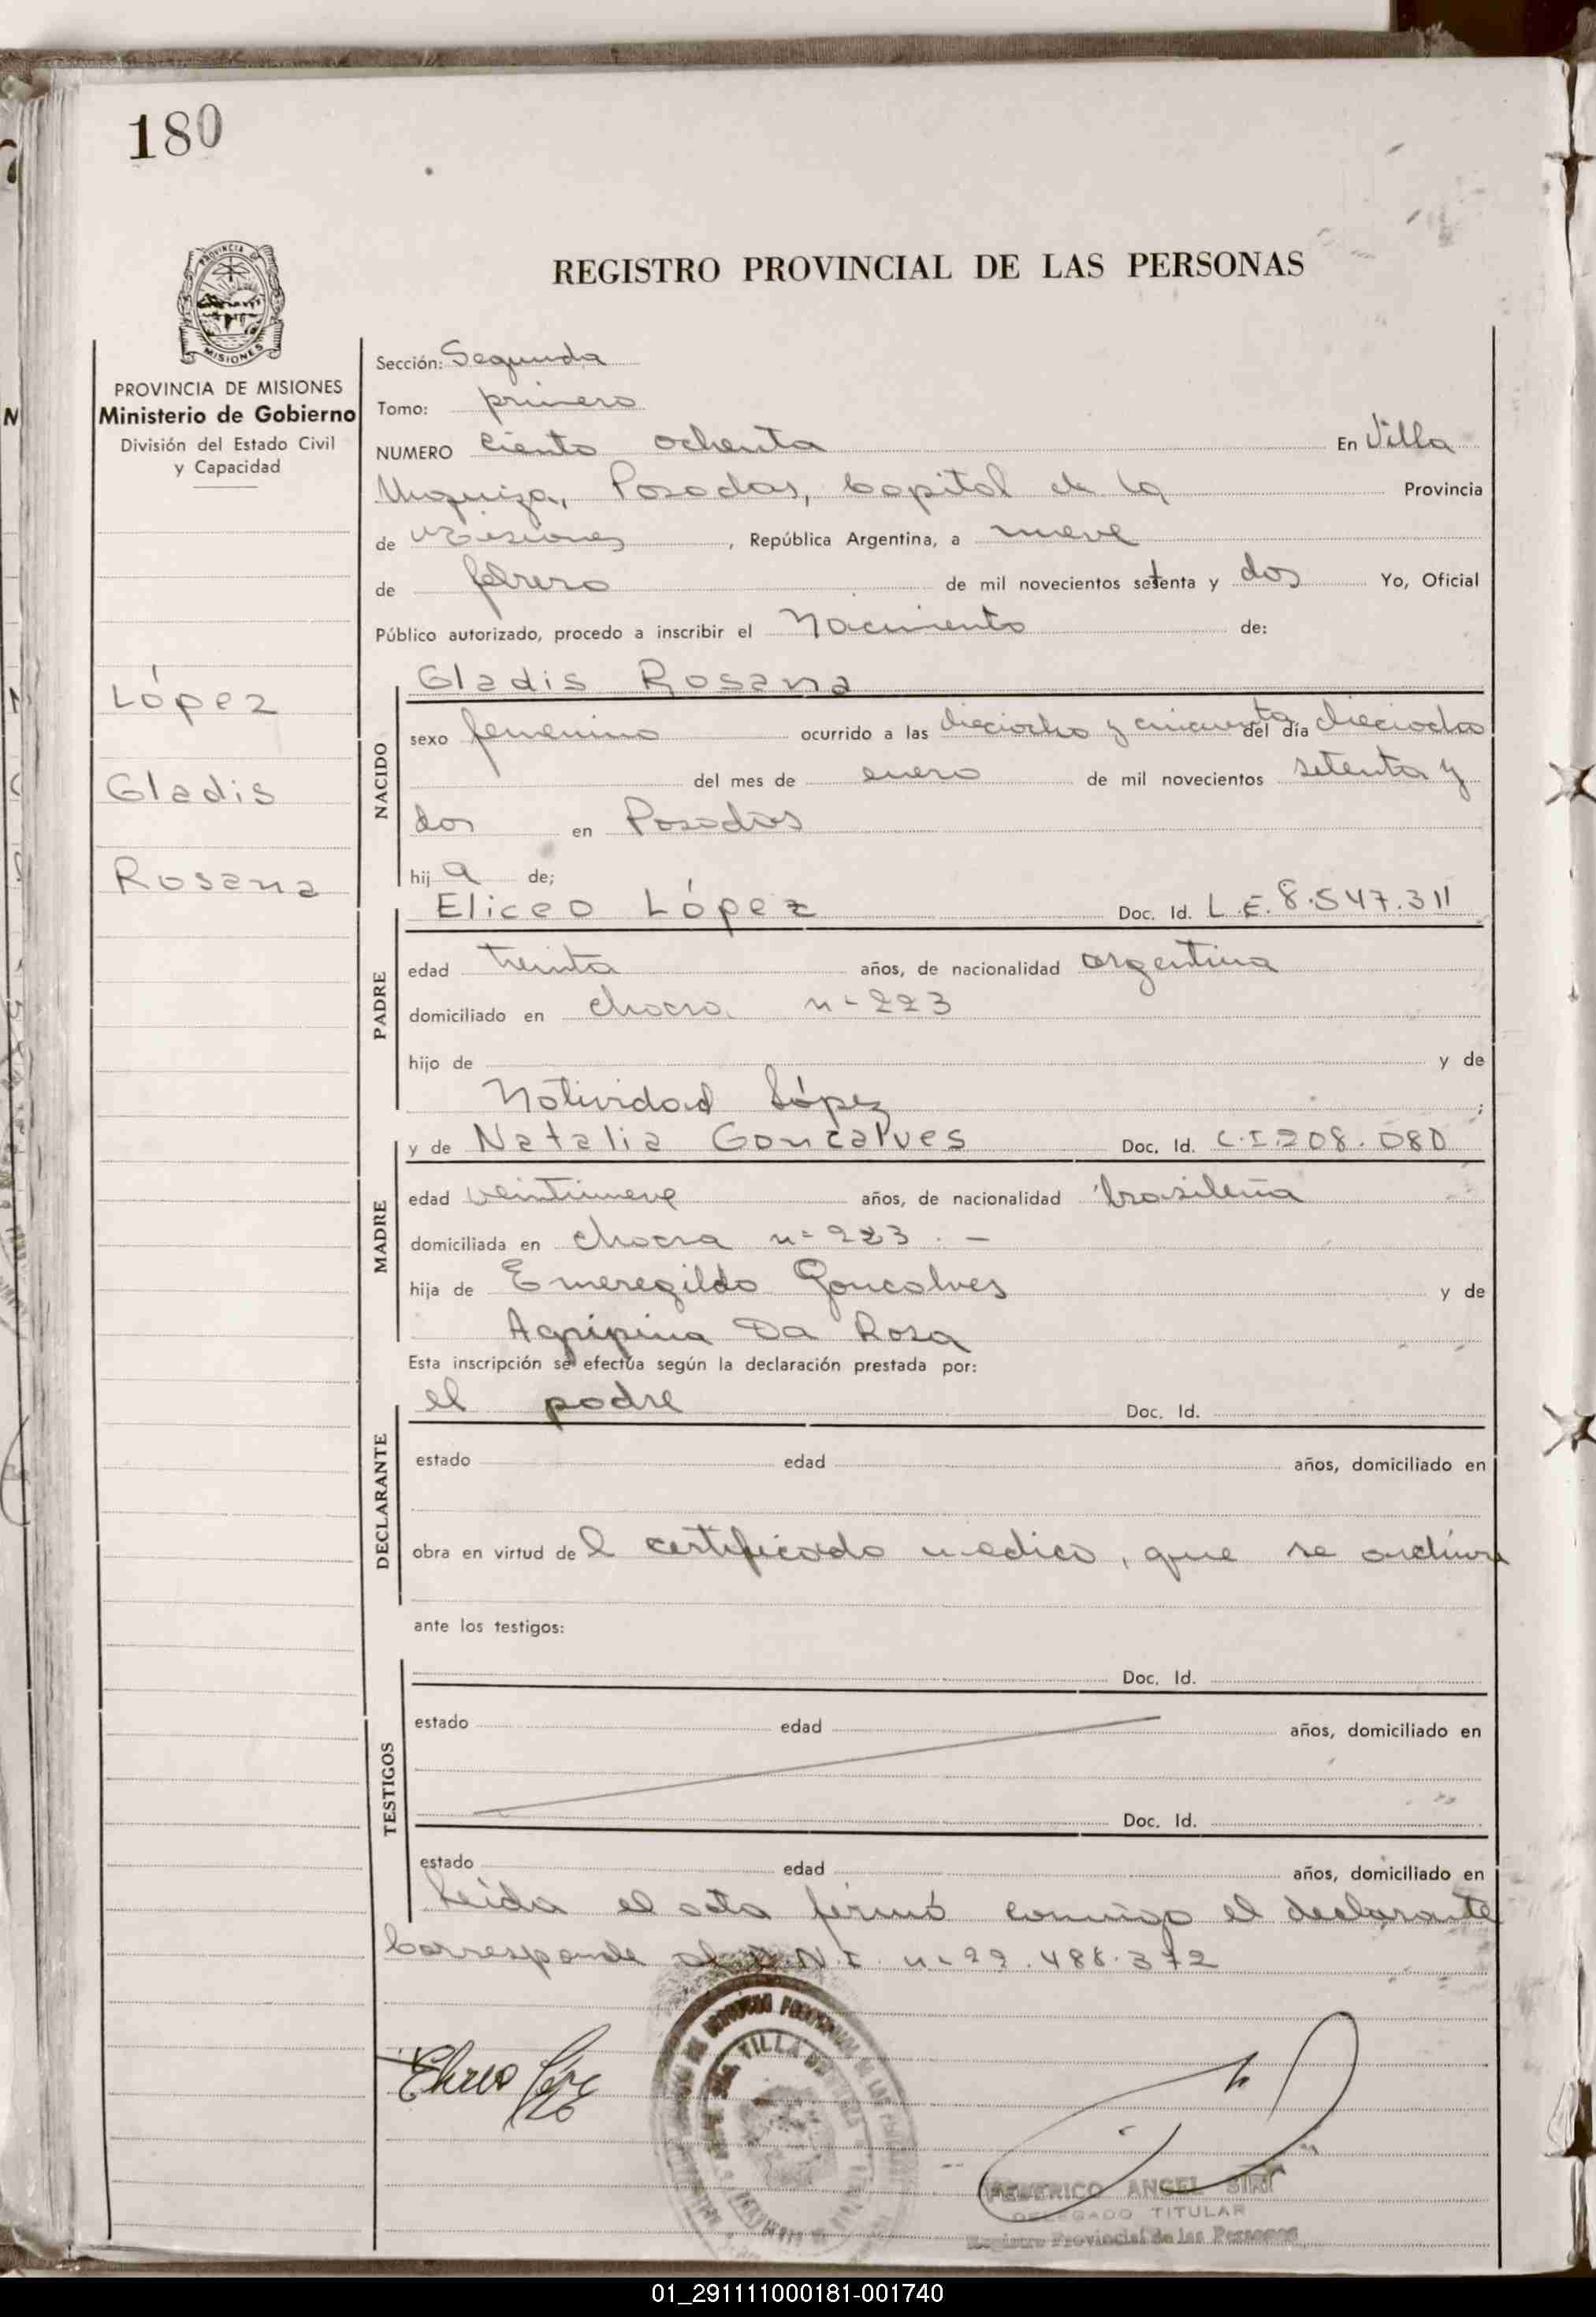 180
PROVINCIA DE
MISIONES
REGISTRO PROVINCIAL DE LAS PERSONAS
PROVINCIA DE MISIONES
Ministerio de Gobierno
División del Estado Civil
y Capacidad
López
Gladis
Rosana
Sección: Segunda
Tomo: primero
NUMERO ciento ochenta En Villa
Urquiza, Posadas, Capital de la Provincia
de Misiones, República Argentina, a nueve
de febrero de mil novecientos setenta y dos Yo, Oficial
Público autorizado, procedo a inscribir el Nacimiento de:
NACIDO
Gladis Rosana
sexo femenino ocurrido a las dieciocho y cincuenta del día dieciocho
del mes de enero de mil novecientos setenta y
dos en Posadas
hij a de;
PADRE
Eliceo López Doc. Id. L.E. 8.547.311
edad treinta años, de nacionalidad argentina
domiciliado en chacra n- 223
hijo de y de
Natividad López ;
MADRE
y de Natalia Goncalves Doc. Id. C.I. 208.080
edad veintinueve años, de nacionalidad brasileña
domiciliada en chacra n= 223 . -
hija de Emeregildo Goncalves y de
Agripina Da Rosa
Esta inscripción se efectúa según la declaración prestada por:
DECLARANTE
el padre Doc. Id.
estado edad años, domiciliado en
obra en virtud de l certificado medico, que se archiva
ante los testigos:
TESTIGOS
Doc. Id.
estado edad años, domiciliado en
Doc. Id.
estado edad años, domiciliado en
Leida el acta firmó conmigo el declarante
Corresponde al D.N.I. n- 22.488.372
FEDERICO ANGEL
DELEGADO TITULAR
Registro Provincial de las Personas
01_291111000181-001740